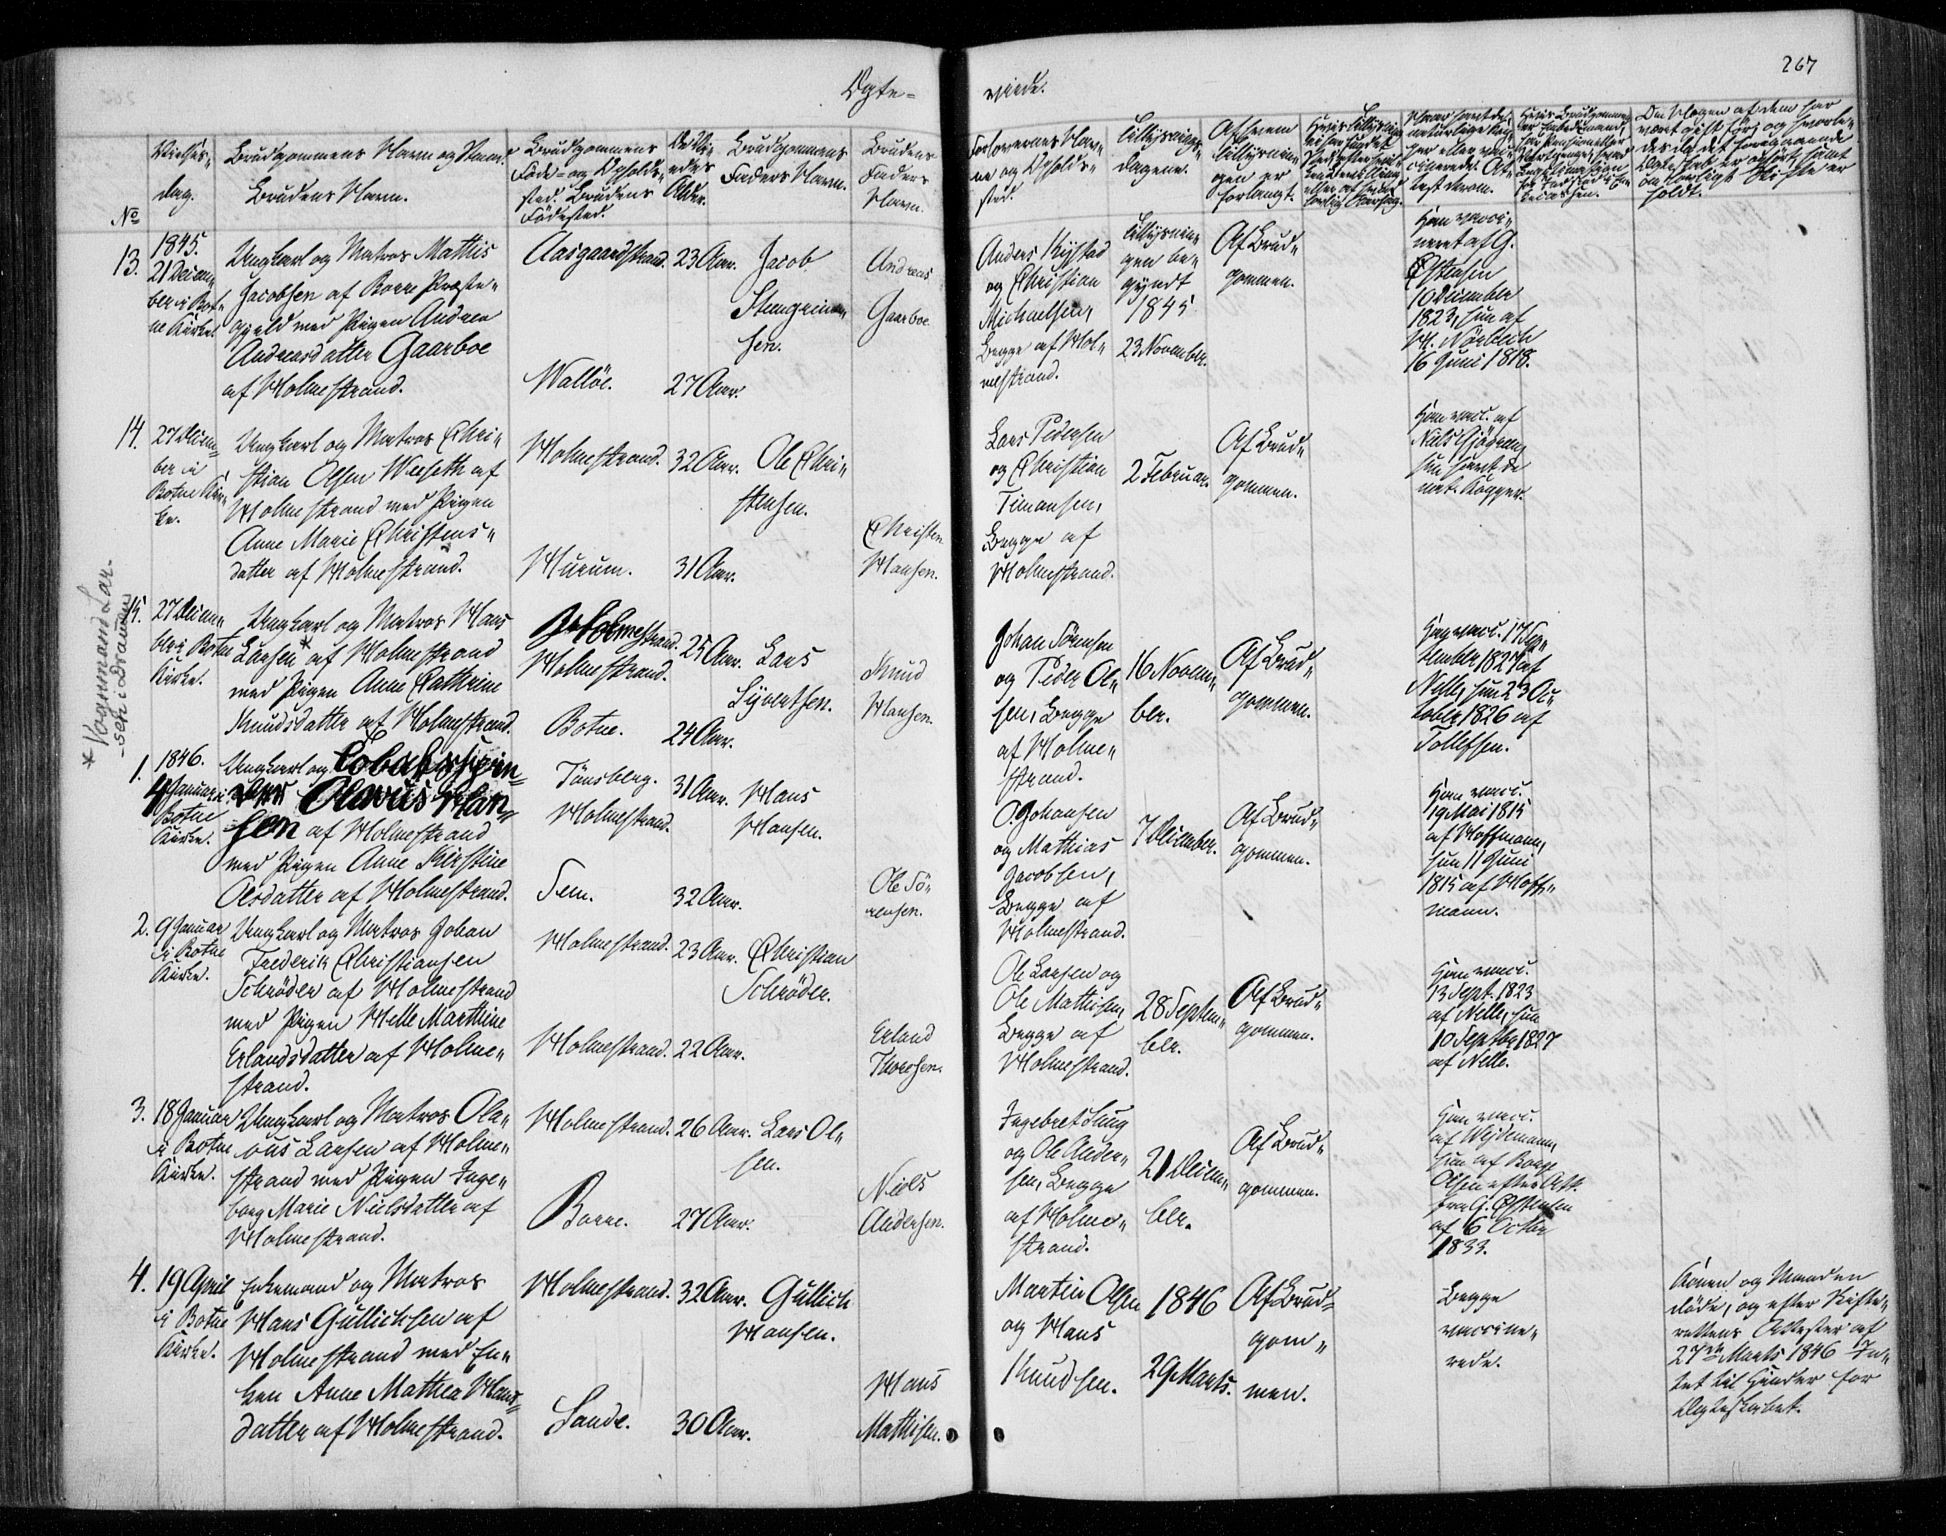 Ægte=
viede.
267
No
Vielses-
dag.
Brudgommens Navn og Stand.
Brudens Navn.
Brudgommens
Føde- og Opholds-
sted. Brudens
Fødested.
De Vi-
edes
Alder.
Brudgommens
Faders Navn.
Brudens
Faders
Navn.
Forlovernes Nav-
ne og Opholds-
sted.
Tillysnings-
dagene.
Af hvem
Tillysnin-
gen er
forlangt.
13.
1845.
21 Decem-
ber i Bot-
ne Kirke.
Ungkarl og Matros Mathis
Jacobsen af Borre Præste-
gjeld med Pigen Andrea
Andreasdatter Gaarboe
af Holmestrand.
Aasgaardstrand.
Walløe.
23 Aar.
27 Aar.
Jacob
Stengrim-
sen.
Andreas
Gaarboe
Anders Kystad
og Christian
Michaelsen,
Begge af Hol-
mestrand.
Tillysnin-
gen be-
gyndt
1845.
23 November.
Af Brud-
gommen.
Han vacci-
neret af G.
Østensen
10 December
1823, hun af
H. Nørbech
16 Juni 1818.
14.
27 Decem-
ber i
Botne Kir-
ke.
Ungkarl og Matros Chri-
stian Olsen Weseth af
Holmestrand med Pigen
Anne Marie Christens-
datter af Holmestrand.
Holmestrand.
Hurum.
32 Aar.
31 Aar.
Ole Chri-
stensen.
Christen
Hansen.
Lars Pedersen
og Christian
Timansen,
Begge af
Holmestrand.
2 Februar.
Af Brud-
gommen.
Han vacc. af
Niels Sjøgren,
hun havt de
nat. Kopper.
15.
27 Decem-
ber i Botne
Kirke.
Ungkarl og Matros Hans
Larsen * af Holmestrand
med Pigen Anne Cathrine
Knudsdatter af Holmestrand.
* Vognmand Lar-
-sen i Drammen
Holmestrand.
Holmestrand.
Botne.
25 Aar.
24 Aar.
Lars
Syvertsen.
Knud
Hansen.
Johan Sørensen
og Peder Ol-
sen, Begge
af Holme-
strand.
16 Novem-
ber.
Af Brud-
gommen.
Han vacc. 17 Sep-
tember 1827 af
Nelle, hun 23 Oc-
tober 1826 af
Tollefsen.
1.
1846.
4 Januar i
Botne
Kirke.
Ungkarl og Tobakspin-
der Olavus Han-
sen af Holmestrand
med Pigen Anne Kirstine
Olsdatter af Holmestrand.
Tønsberg.
Holmestrand.
Sem.
31 Aar.
32 Aar.
Hans
Hansen.
Ole Sø-
rensen.
O. Johansen
og Mathias
Jacobsen,
Begge af
Holmestrand.
7 December.
Af Brud-
gommen.
Han vacc.
19 Mai 1815
af Hoffmann,
hun 11 Juni
1815 af Hoff-
mann.
2.
9 Januar
i Botne
Kirke.
Ungkarl og Matros Johan
Frederik Christiansen
Schrøder af Holmestrand
med Pigen Helle Marthine
Erlandsdatter af Holme-
strand.
Holmestrand.
Holmestrand.
23 Aar.
22 Aar.
Christian
Schrøder.
Erland
Thoresen.
Ole Larsen og
Ole Mathisen,
Begge af
Holmestrand.
28 Septem-
ber.
Af Brud-
gommen.
Han vacc.
13 Sept. 1823
af Nelle, hun
10 Septbr 1827
af Nelle.
3.
18 Januar
i Botne
Kirke.
Ungkarl og Matros Ola-
vus Larsen af Holme-
strand med Pigen Inge-
borg Marie Nielsdatter af
Holmestrand.
Holmestrand.
Borre.
26 Aar.
27 Aar.
Lars Ol-
sen.
Niels
Andersen.
Ingebret Haug
og Ole Ander-
sen, Begge
af Holme-
strand.
21 Decem-
ber.
Af Brud-
gommen.
Han vacc.
af Weidemann,
hun af Borge
Olsen efter Att.
fra G. Østensen
af 6 Octbr
1833.
4.
19 April
i Botne
Kirke.
Enkemand og Matros
Hans Gullichsen af
Holmestrand med En-
ken Anne Mathea Hans-
datter af Holmestrand.
Holmestrand.
Sande.
32 Aar.
30 Aar.
Gullich
Hansen.
Hans
Mathisen.
Martin Olsen
og Hans
Knudsen.
1846
29 Marts.
Af Brud-
gom-
men.
Begge
vaccine-
rede.
Konen og Manden
døde, og efter Skifte-
rettens Attester af
27de Marts 1846 In-
tet til Hinder for
Ægteskabet.